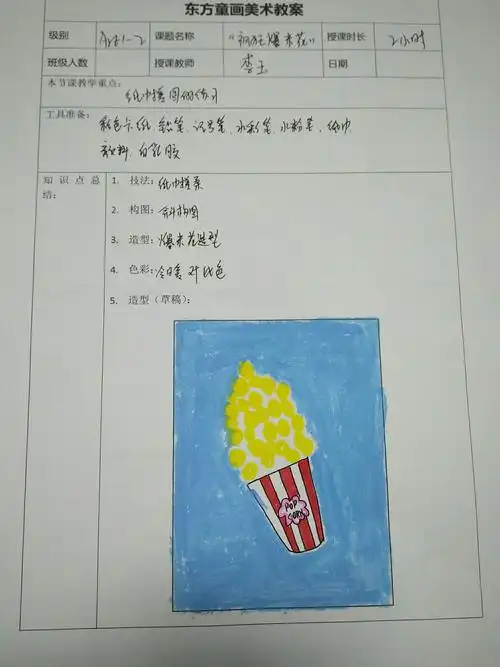 东方童画美术教案
级别 课题名称 "疯狂爆米花" 授课时长 2小时
班级人数 授课教师 李玉 日期
本节课教学重点:
纸巾揉圆的练习
工具准备: 彩色卡纸 铅笔 记号笔 水彩笔 水粉笔 纸巾
颜料 白乳胶
知识点总结:
1. 技法: 纸巾揉
2. 构图: 斜构图
3. 造型: 爆米花造型
4. 色彩: 冷暖对比色
5. 造型(草稿):
POP
CORN